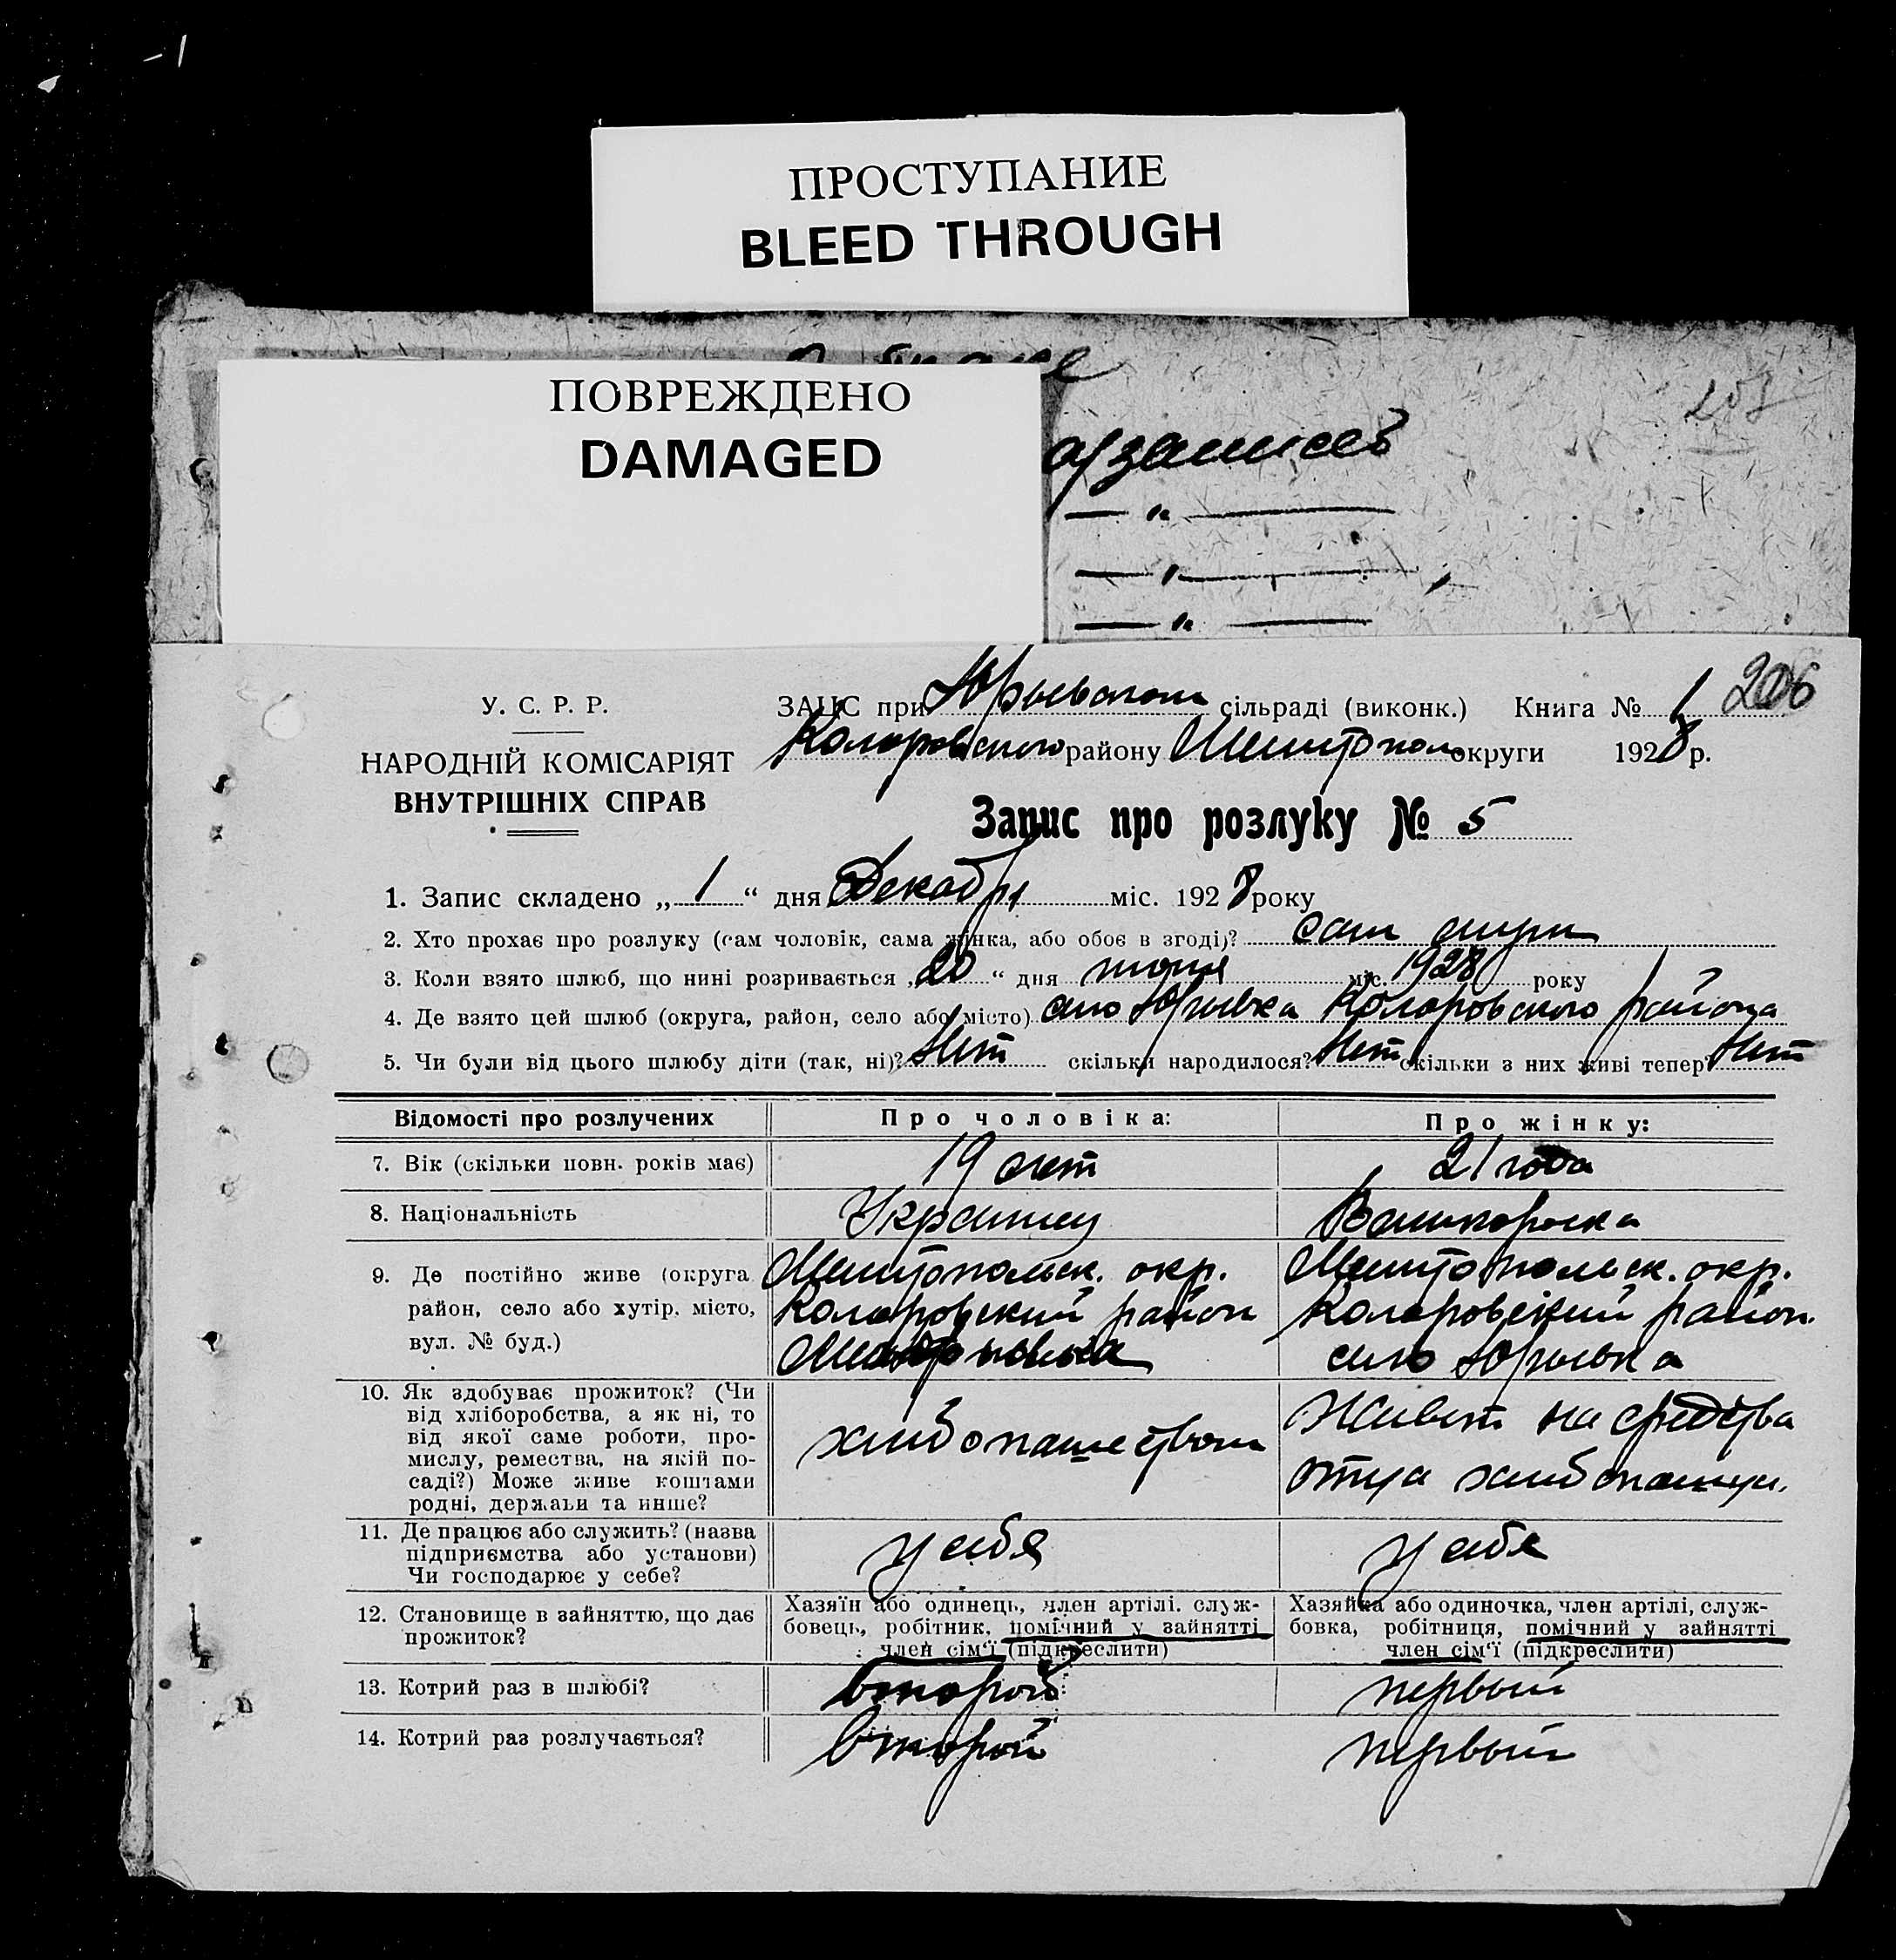 ПРОСТУПАНИЕ
BLEED THROUGH
ПОВРЕЖДЕНО
DAMAGED
У. С. Р. Р.
НАРОДНІЙ КОМІСАРІЯТ
ВНУТРІШНІХ СПРАВ
ЗАЦС при Юрьевском сільраді (виконк.) Книга № 1 206
Коларовского району Мелитопол округи 1928 р.
Запис про розлуку № 5
1. Запис складено „ 1 “ дня Декабря міс. 1928 року
2. Хто прохає про розлуку (сам чоловік, сама жінка, або обоє в згоді)? сам
3. Коли взято шлюб, що нині розривається „ 20 “ дня міс. 1928 року
4. Де взято цей шлюб (округа, район, село або місто) село Юрьевка Коларовского района
5. Чи були від цього шлюбу діти (так, ні)? Нет скільки народилося? Нет скільки з них живі тепер? Нет
Відомості про розлучених
Про чоловіка:
Про жінку:
7. Вік (скільки повн. років має)
19 лет
21 года
8. Національність
Украинец
9. Де постійно живе (округа
район, село або хутір, місто,
вул. № буд.)
Мелитопольск. окр.
Коларовский район
Мелитопольск. окр.
Коларовский район.
село Юрьевка
10. Як здобуває прожиток? (Чи
від хліборобства, а як ні, то
від якої саме роботи, про-
мислу, ремества, на якій по-
саді?) Може живе коштами
родні, держави та инше?
хлебопашеством
Живет на средства
отца хлебопашца.
11. Де працює або служить? (назва
підприємства або установи)
Чи господарює у себе?
у себя
у себя
12. Становище в зайняттю, що дає
прожиток?
Хазяїн або одинець, член артілі, служ-
бовець, робітник, помічний у зайнятті
член сім'ї (підкреслити)
Хазяйка або одиночка, член артілі, служ-
бовка, робітниця, помічний у зайнятті
член сім'ї (підкреслити)
13. Котрий раз в шлюбі?
второй
первый
14. Котрий раз розлучається?
второй
первый